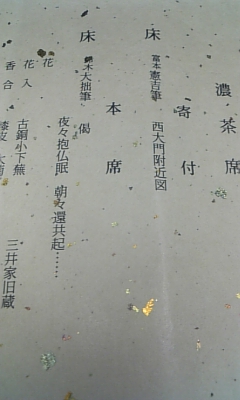 濃茶席
寄付
床 富本憲吉筆 西大門附近図
本席
床 大拙筆 偈
夜々抱仏眠 朝々還共起……
花
花入 古銅小下蕪 三井家旧蔵
香合